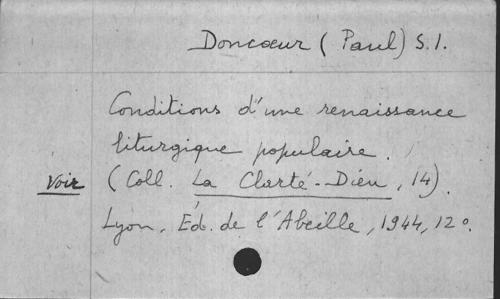 Doncœur (Paul) S.I.
Conditions d'une renaissance
liturgique populaire.
Voir (Coll. La Clarté-Dieu, 14).
Lyon, Éd. de l'Abeille, 1944, 12°.